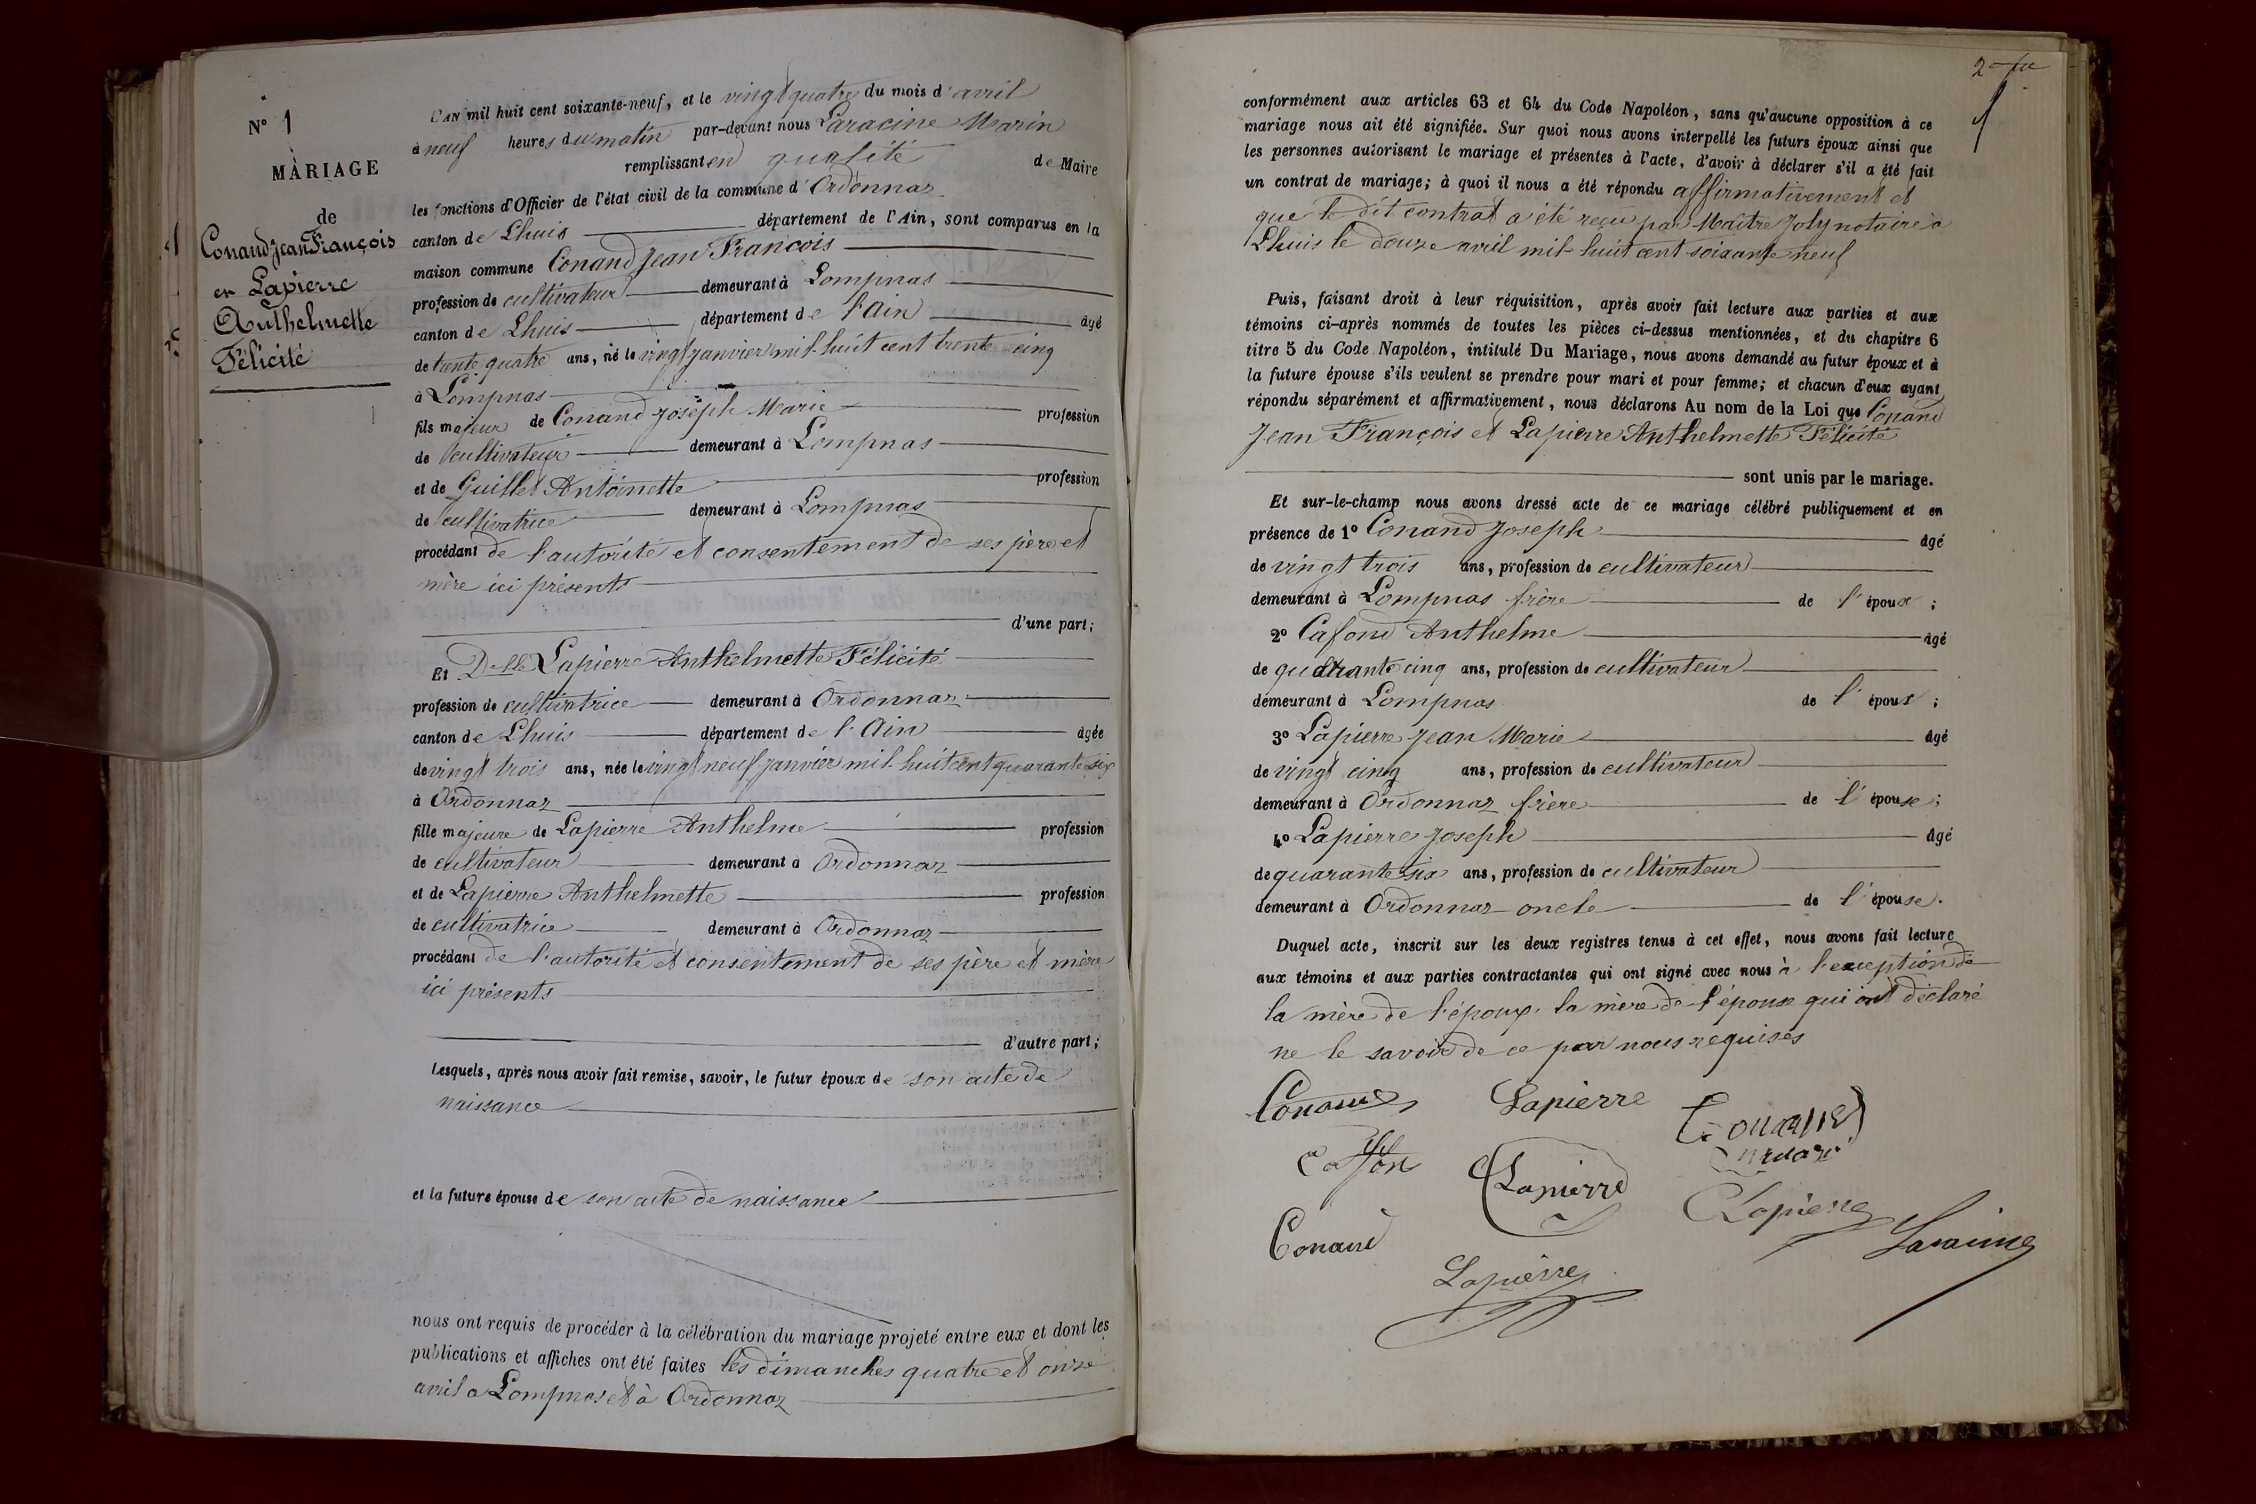 N° 1
MARIAGE
de
Conand Jean François
et Lapierre
Anthelmette
Félicité
L'AN mil huit cent soixante-neuf, et le vingt quatre du mois d'avril
à neuf heures du matin par-devant nous Laracine Marin
remplissant en qualité de Maire
les fonctions d'Officier de l'état civil de la commune d'Ordonnaz
canton de Lhuis département de l'Ain, sont comparus en la
maison commune Conand Jean François
profession de cultivateur demeurant à Lompnas
canton de Lhuis département de l'Ain âgé
de trente quatre ans, né le vingt janvier mil huit cent trente cinq
à Lompnas
fils majeur de Conand Joseph Marie profession
de cultivateur demeurant à Lompnas
et de Guillet Antoinette profession
de cultivatrice demeurant à Lompnas
procédant de l'autorité et consentement de ses père et
mère ici présents
d'une part;
Et Delle Lapierre Anthelmette Félicité
profession de cultivatrice demeurant à Ordonnaz
canton de Lhuis département de l'Ain âgée
de vingt trois ans, née le vingt neuf janvier mil huit cent quarante six
à Ordonnaz
fille majeure de Lapierre Anthelme profession
de cultivateur demeurant à Ordonnaz
et de Lapierre Anthelmette profession
de cultivatrice demeurant à Ordonnaz
procédant de l'autorité et consentement de ses père et mère
ici présents
d'autre part;
Lesquels, après nous avoir fait remise, savoir, le futur époux de son acte de
naissance
et la future épouse de son acte de naissance
nous ont requis de procéder à la célébration du mariage projeté entre eux et dont les
publications et affiches ont été faites les dimanches quatre et onze
avril a Lompnas et à Ordonnaz
conformément aux articles 63 et 64 du Code Napoléon, sans qu'aucune opposition à ce
mariage nous ait été signifiée. Sur quoi nous avons interpellé les futurs époux ainsi que
les personnes autorisant le mariage et présentes à l'acte, d'avoir à déclarer s'il a été fait
un contrat de mariage; à quoi il nous a été répondu affirmativement et
que le dit contrat a été reçu par Maître Joly notaire à
Lhuis le douze avril mil huit cent soixante neuf
Puis, faisant droit à leur réquisition, après avoir fait lecture aux parties et aux
témoins ci-après nommés de toutes les pièces ci-dessus mentionnées, et du chapitre 6
titre 5 du Code Napoléon, intitulé Du Mariage, nous avons demandé au futur époux et à
la future épouse s'ils veulent se prendre pour mari et pour femme; et chacun d'eux ayant
répondu séparément et affirmativement, nous déclarons Au nom de la Loi que Conand
Jean François et Lapierre Anthelmette Félicité
sont unis par le mariage.
Et sur-le-champ nous avons dressé acte de ce mariage célébré publiquement et en
présence de 1° Conand Joseph âgé
de vingt trois ans, profession de cultivateur
demeurant à Lompnas frère de l'époux;
2° Cafond Anthelme âgé
de quarante cinq ans, profession de cultivateur
demeurant à Lompnas de l'époux;
3° Lapierre Jean Marie âgé
de vingt cinq ans, profession de cultivateur
demeurant à Ordonnaz frère de l'épouse;
4° Lapierre Joseph âgé
de quarante six ans, profession de cultivateur
demeurant à Ordonnaz oncle de l'épouse.
Duquel acte, inscrit sur les deux registres tenus à cet effet, nous avons fait lecture
aux témoins et aux parties contractantes qui ont signé avec nous à l'exception de
la mère de l'époux la mère de l'épouse qui ont déclaré
ne le savoir de ce par nous requises
Conand Lapierre
Lapierre
Lapierre
Conand Laracine
Lapierre